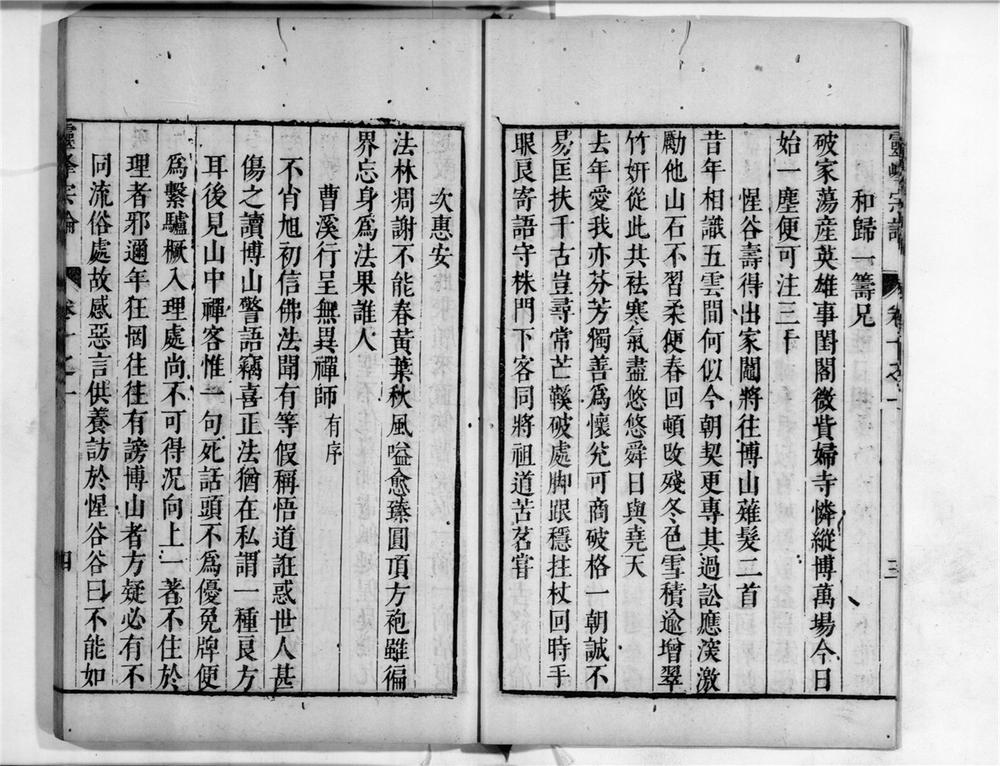 和歸一籌兄
破家蕩產英雄事閨閣微貲婦寺憐縱博萬場今日
始一塵便可注三千
惺谷壽得出家闔將往博山薙髮二首
昔年相識五雲間何似今朝契更專其過訟應深激
勵他山石不習柔便春回頓改殘冬色雪積逾增翠
竹妍從此共袪寒氣盡悠悠舜日與堯天
去年愛我亦芬芳獨善爲懷兊可商破格一朝誠不
易匡扶千古豈尋常芒鞵破處脚跟穩拄杖回時手
眼良寄語守株門下客同將祖道苦茗嘗
靈峰宗論
卷十之一
三
次惠安
法林凋謝不能春黃葉秋風嗌愈臻圓頂方袍雖徧
界忘身爲法果誰人
曹溪行呈無異禪師 有序
不肖旭初信佛法聞有等假稱悟道誑惑世人甚
傷之讀博山警語竊喜正法猶在私謂一種良方
耳後見山中禪客惟一句死話頭不爲優免牌便
爲繫驢橛入理處尚不可得況向上一著不住於
理者邪邇年狂罔往往有謗博山者方疑必有不
同流俗處故感惡言供養訪於惺谷谷曰不能如
靈峰宗論
卷十之一
四